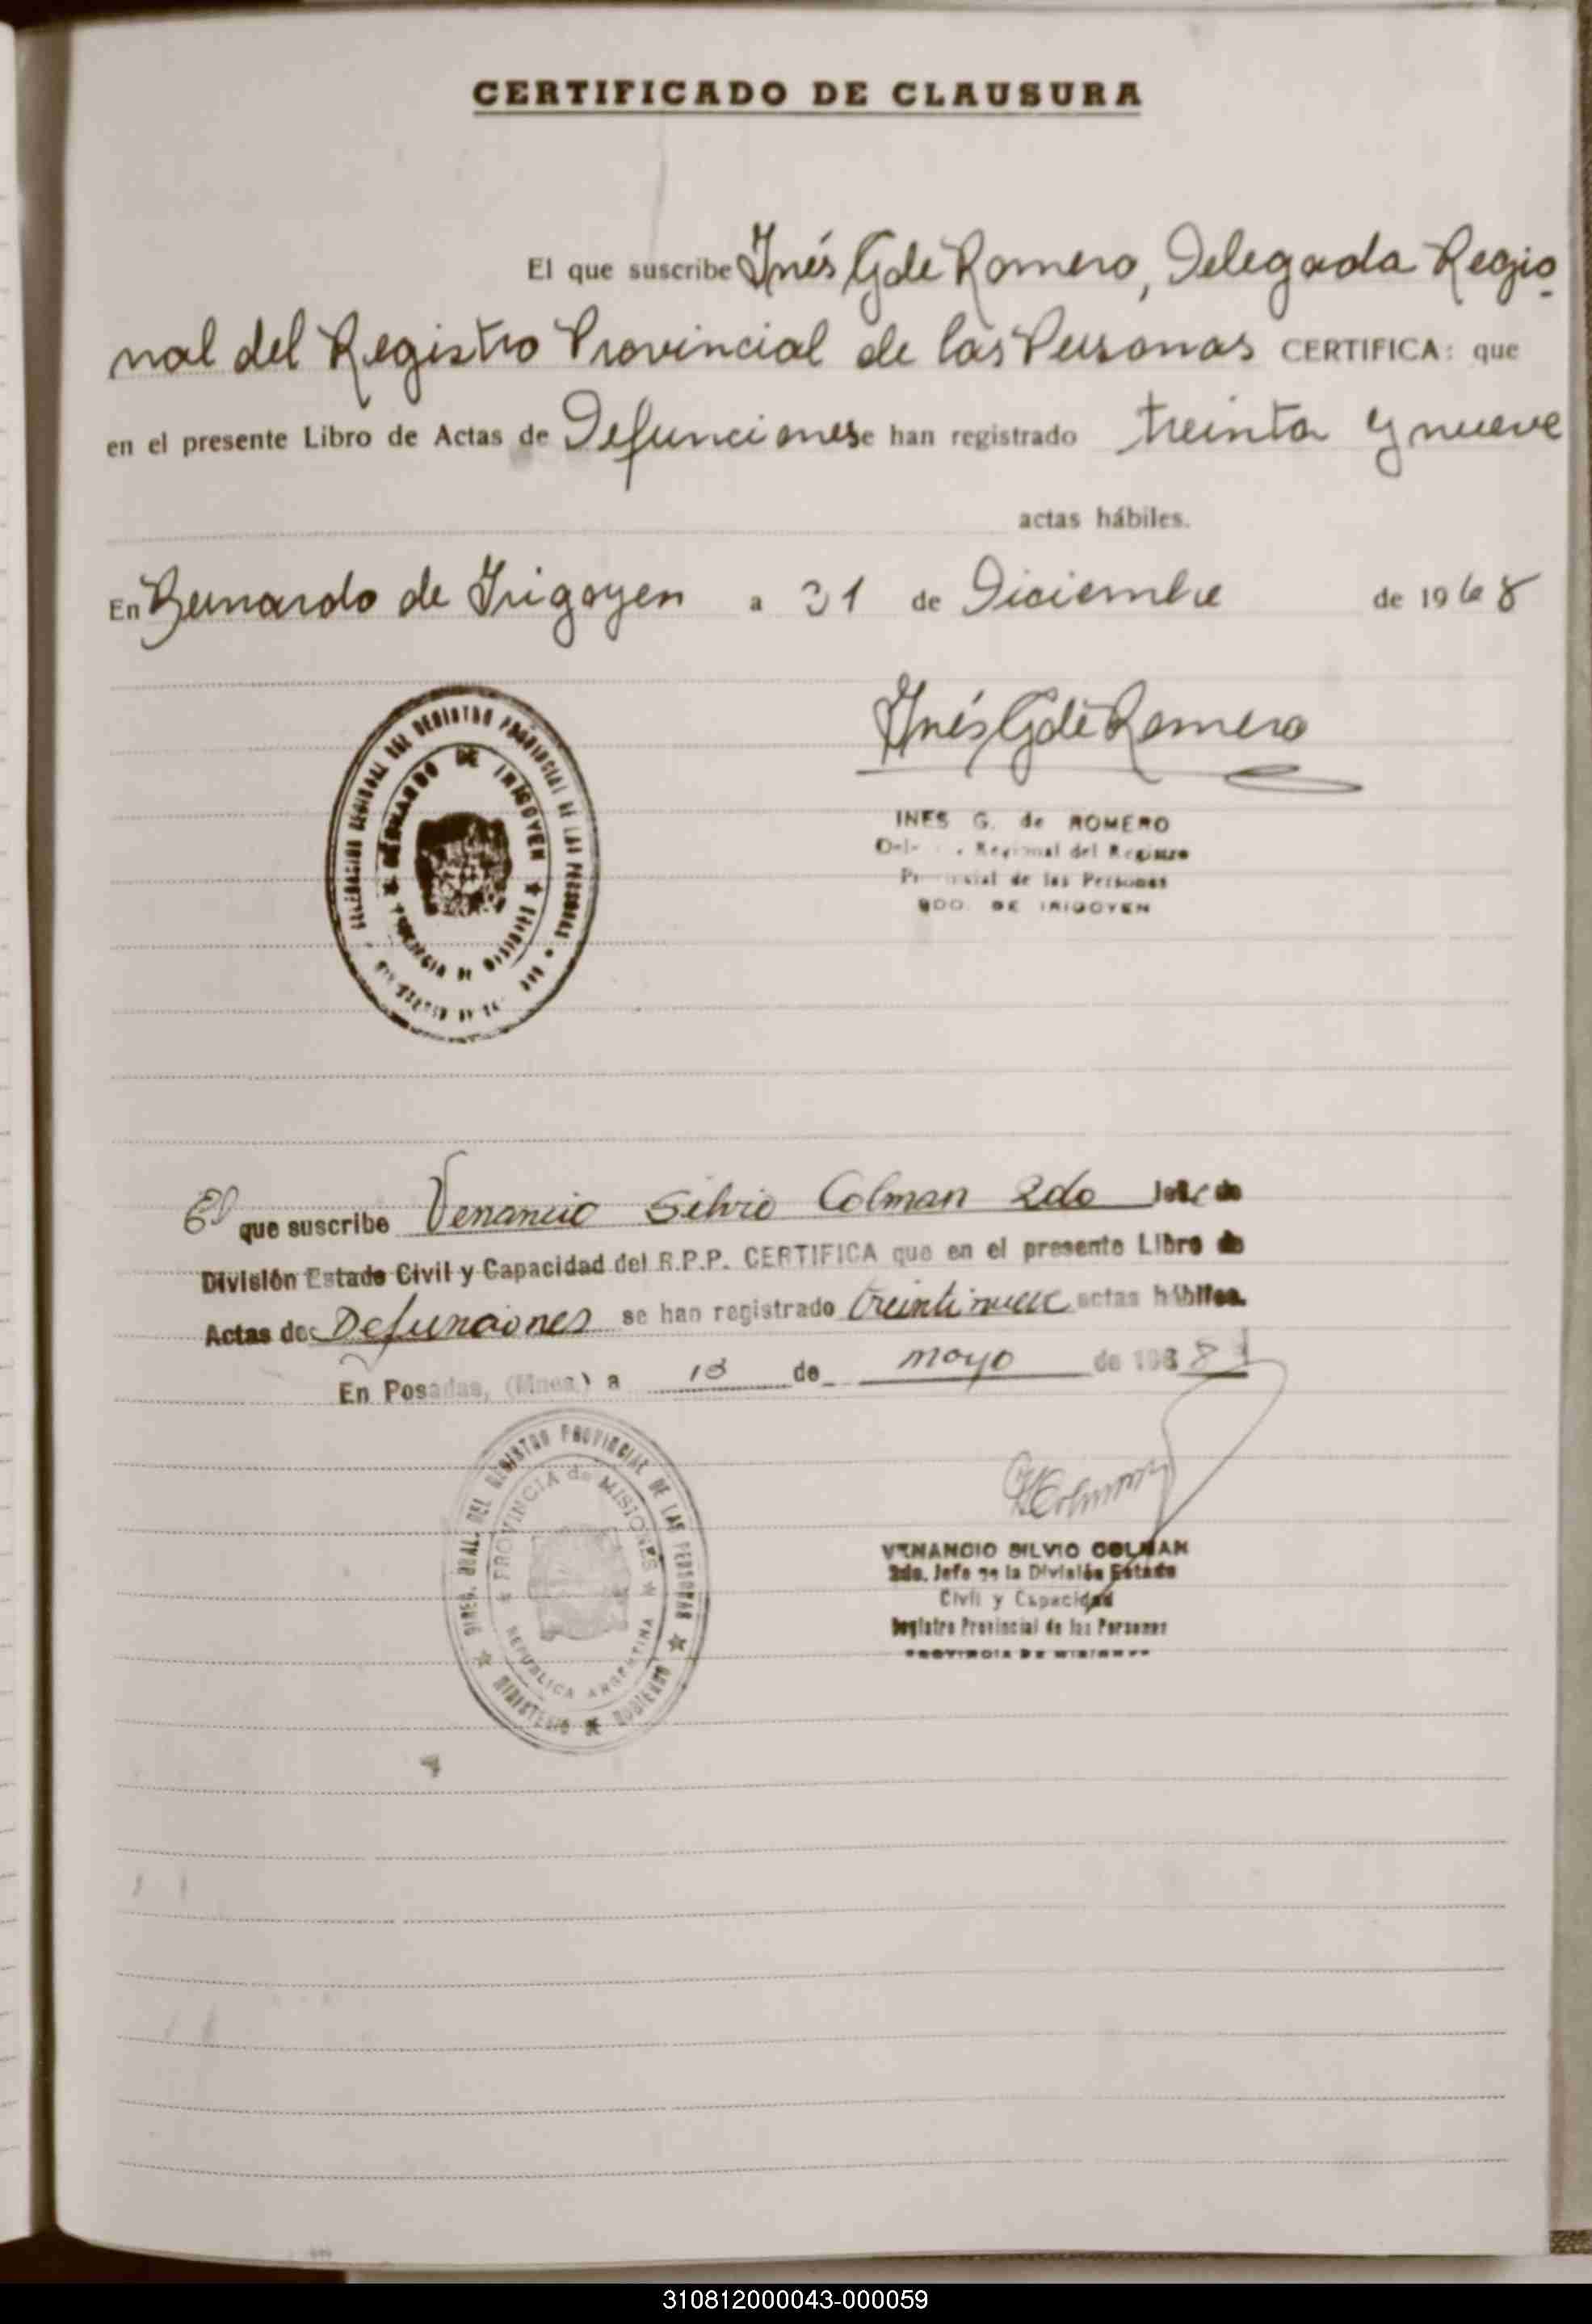 CERTIFICADO DE CLAUSURA
El que suscribe Inés G de Romero, Delegada Regio
nal del Registro Provincial de las Personas CERTIFICA: que
en el presente Libro de Actas de Defunciones se han registrado treinta y nueve
actas hábiles.
En Bernardo de Irigoyen a 31 de Diciembre de 1968
DELEGACION REGIONAL DEL REGISTRO PROVINCIAL DE LAS PERSONAS
BERNARDO DE IRIGOYEN
PROVINCIA DE MISIONES
Inés G de Romero
INES G. de ROMERO
Regional del Registro
Provincial de las Personas
BDO. DE IRIGOYEN
El que suscribe Venancio Silvio Colman 2do Jefe de
División Estado Civil y Capacidad del R.P.P. CERTIFICA que en el presente Libro de
Actas de: Defunciones se han registrado treintinueve actas hábiles.
En Posadas, (Mnes.) a 18 de mayo de
DIREC. GRAL. DEL REGISTRO PROVINCIAL DE LAS PERSONAS
PROVINCIA de MISIONES
REPUBLICA ARGENTINA
MINISTERIO DE GOBIERNO
VSColman
VENANCIO SILVIO COLMAN
2do. Jefe de la División Estado
Civil y Capacidad
Registro Provincial de las Personas
PROVINCIA DE MISIONES
310812000043-000059